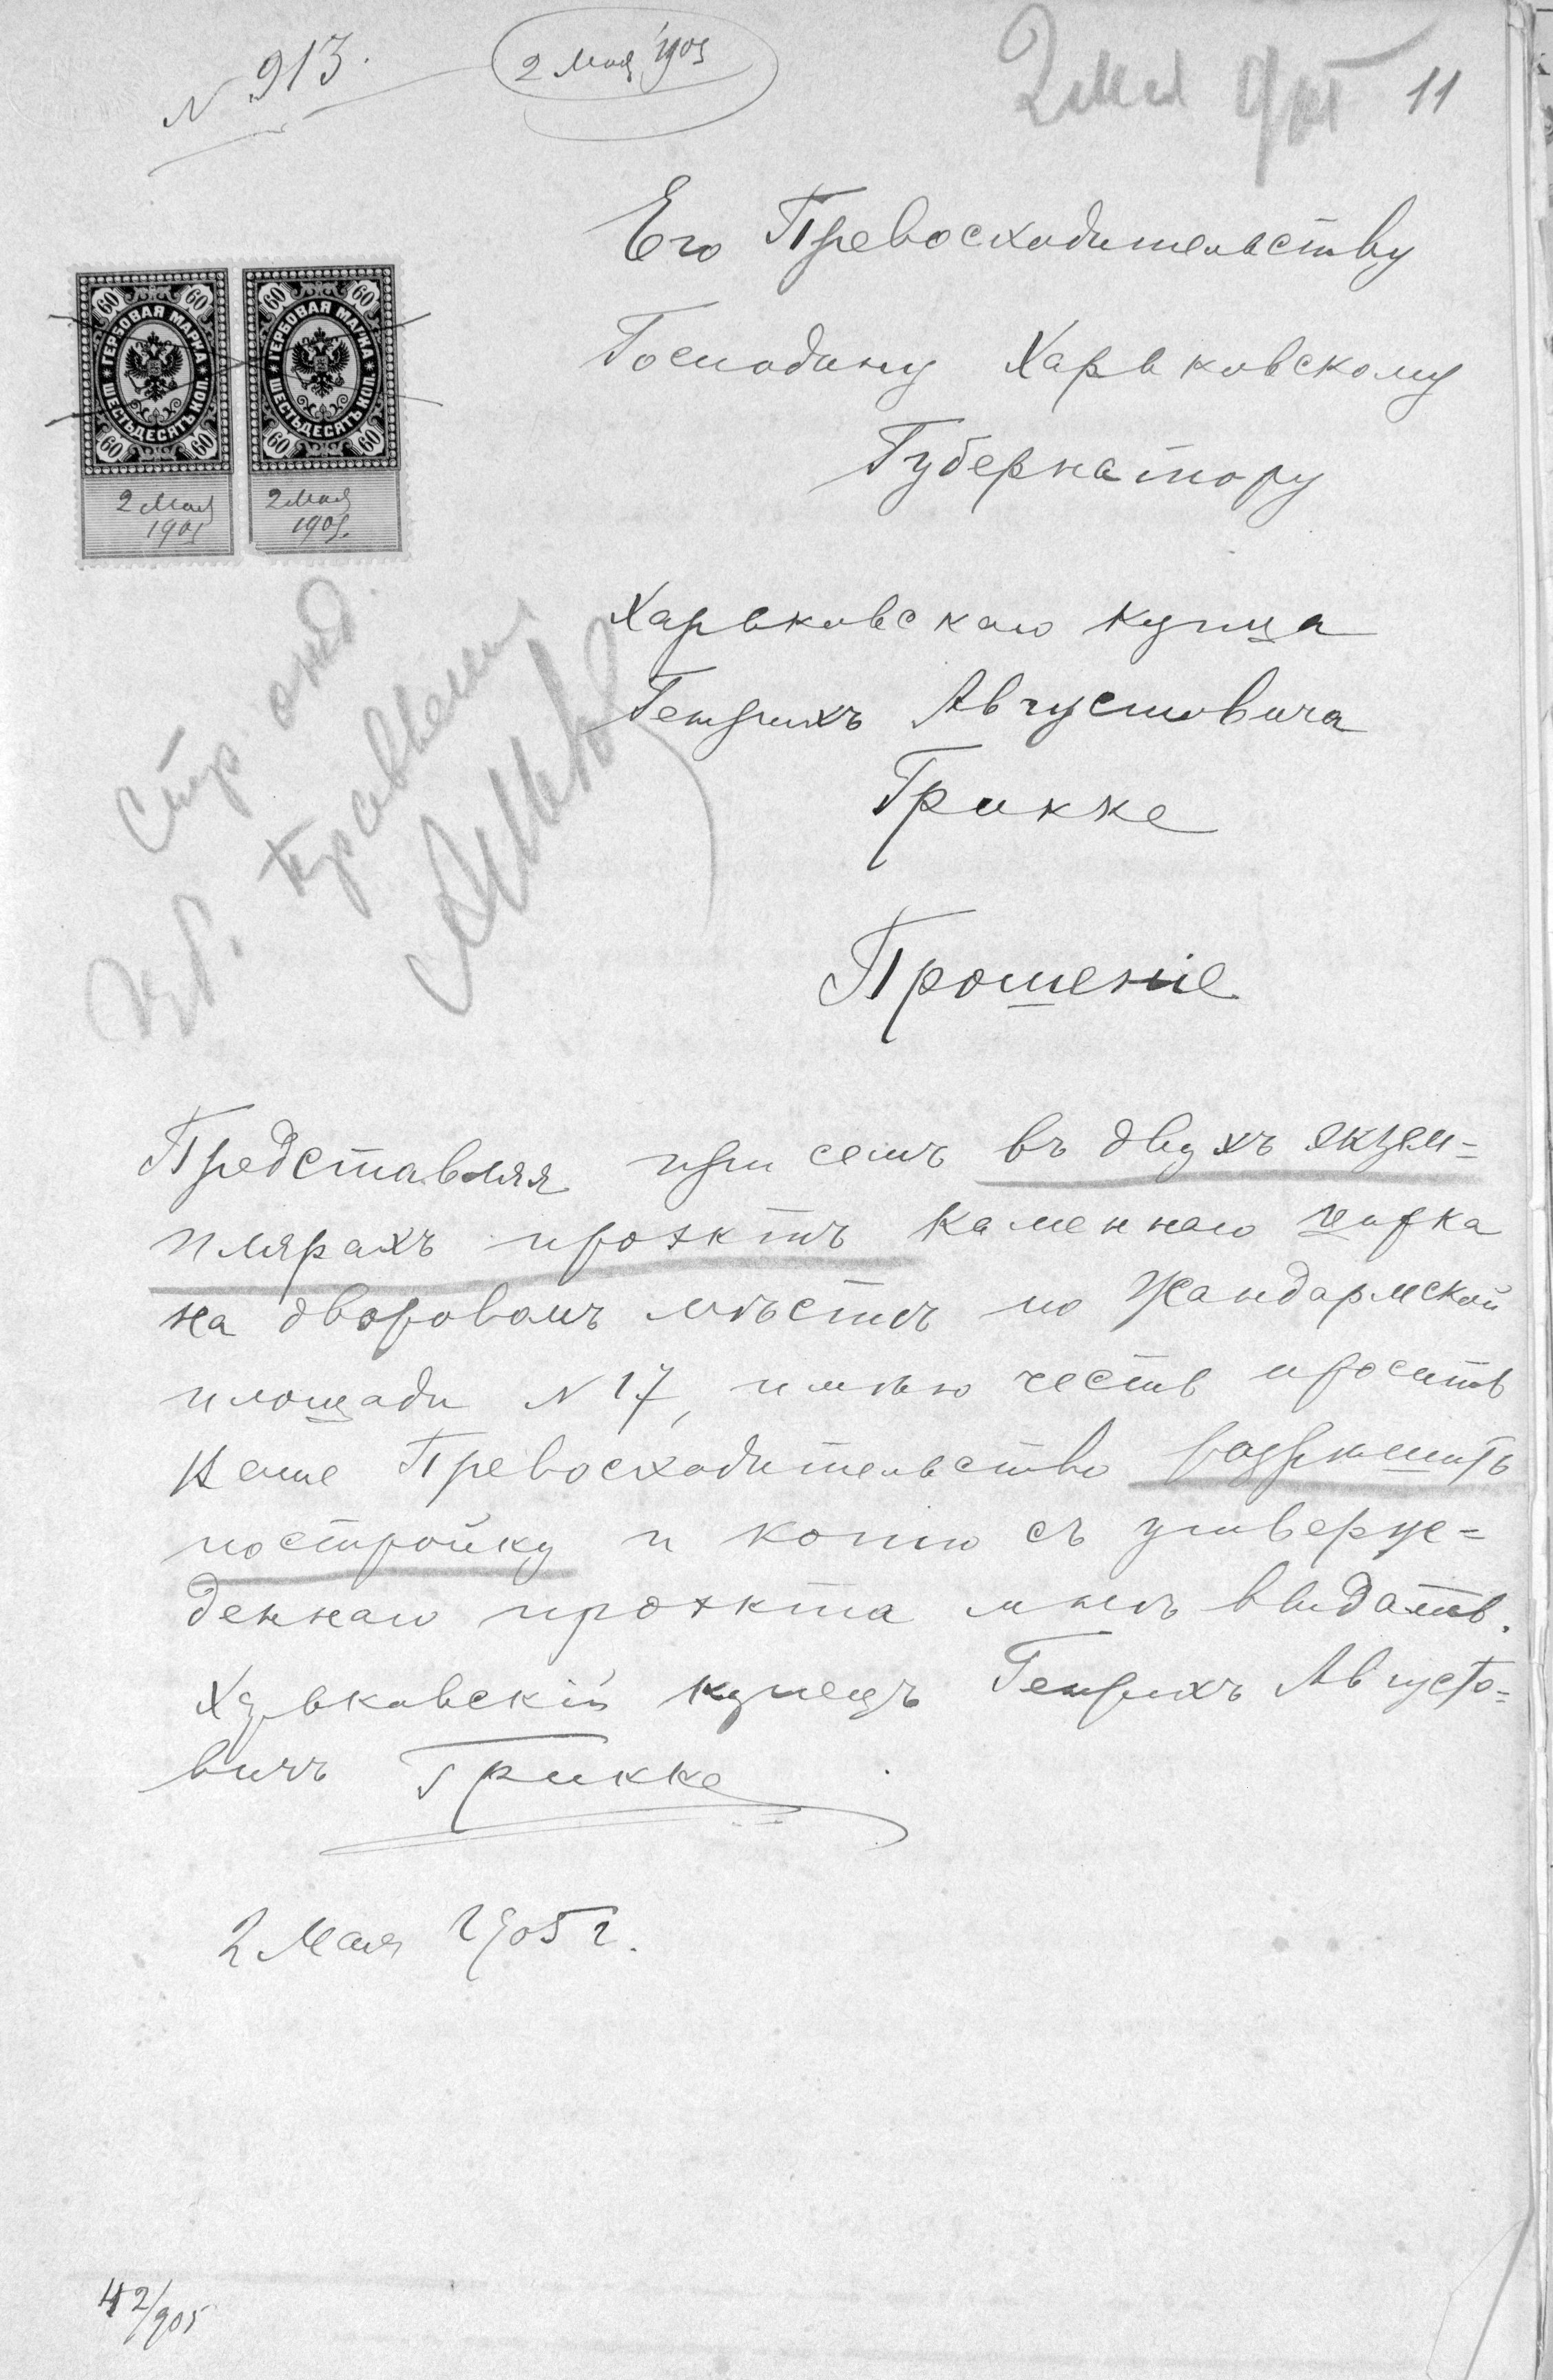 N 913.
2 Мая 1905
2 мая
11
Его Превосходительству
Господину Харьковскому
Губернатору
ГЕРБОВАЯ МАРКА
ШЕСТЬДЕСЯТЪ КОП.
60 60 60 60
2 Мая
1905
ГЕРБОВАЯ МАРКА
ШЕСТЬДЕСЯТЪ КОП.
60 60 60 60
2 Мая
1905.
Харьковскаго купца
Генрихъ Августовича
Грикке
Стр. отд.
Прошеніе
Представляя при семъ въ двухъ экзем=
плярахъ проэктъ каменнаго цирка
на дворовомъ мѣстѣ по Жандармской
площади N 17, имѣю честь просить
Ваше Превосходительство разрѣшить
постройку и копію съ утверж=
деннаго проэкта мнѣ выдать.
Харьковскій купецъ Генрихъ Августо=
вичъ Грикке
2 Мая 1905 г.
42/905